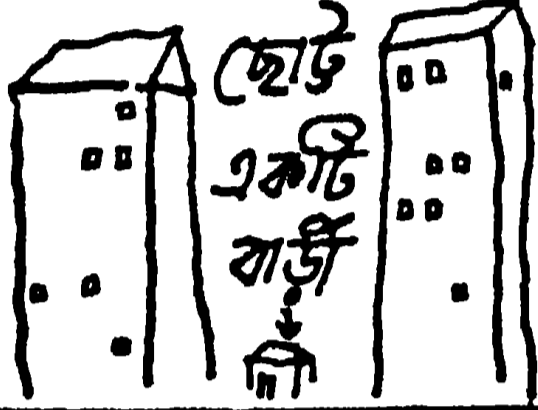 ছোট্ট
একটি
বাড়ী